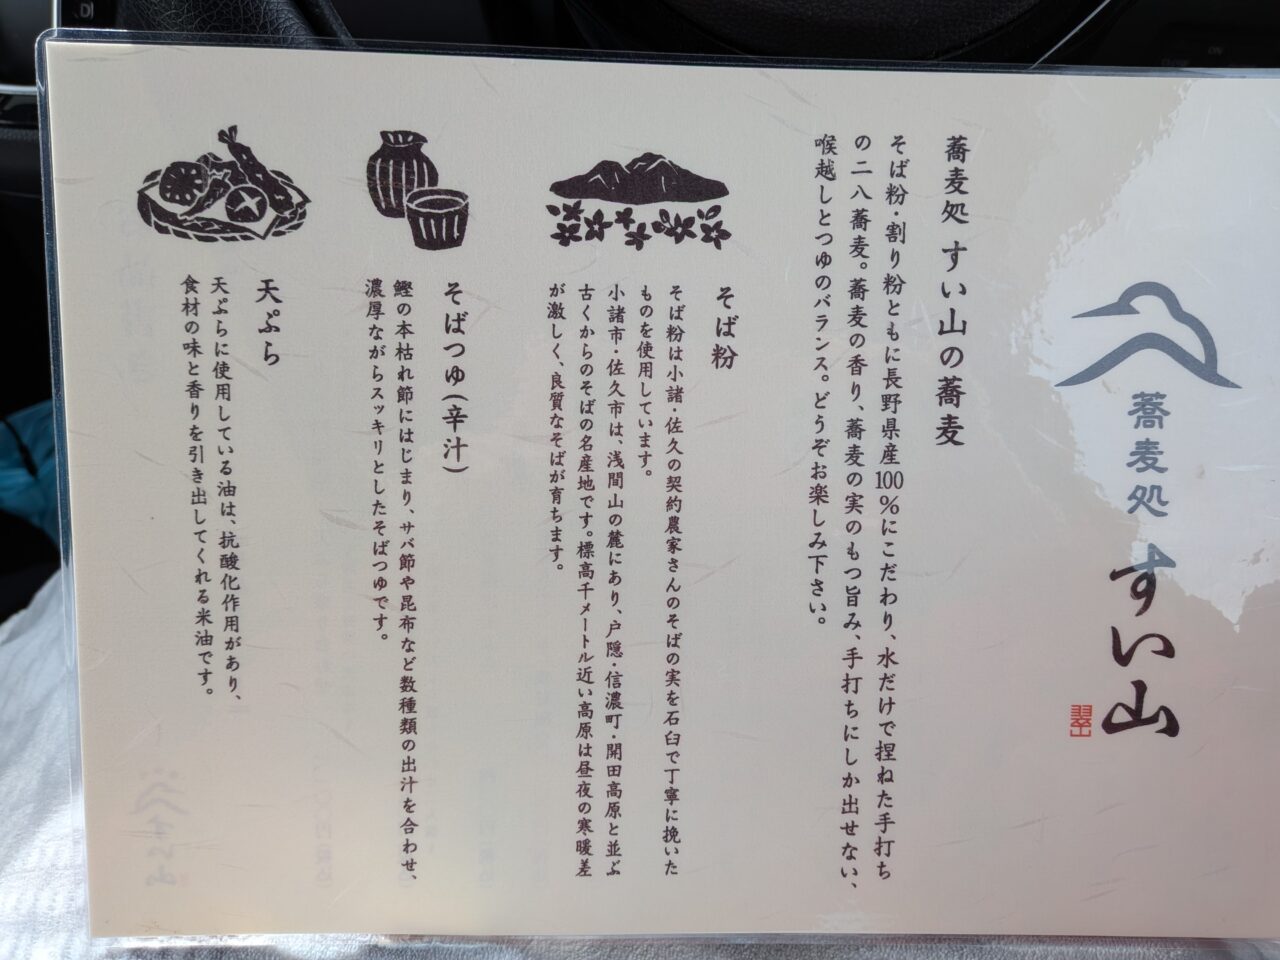 蕎麦処
すい山
翠山
蕎麦処 すい山の蕎麦
そば粉・割り粉ともに長野県産100%にこだわり、水だけで捏ねた手打ち
の二八蕎麦。蕎麦の香り、蕎麦の実のもつ旨み、手打ちにしか出せない、
喉越しとつゆのバランス。どうぞお楽しみ下さい。
そば粉
そば粉は小諸・佐久の契約農家さんのそばの実を石臼で丁寧に挽いた
ものを使用しています。
小諸市・佐久市は、浅間山の麓にあり、戸隠・信濃町・開田高原と並ぶ
古くからのそばの名産地です。標高千メートル近い高原は昼夜の寒暖差
が激しく、良質なそばが育ちます。
そばつゆ(辛汁)
鰹の本枯れ節にはじまり、サバ節や昆布など数種類の出汁を合わせ、
濃厚ながらスッキリとしたそばつゆです。
天ぷら
天ぷらに使用している油は、抗酸化作用があり、
食材の味と香りを引き出してくれる米油です。